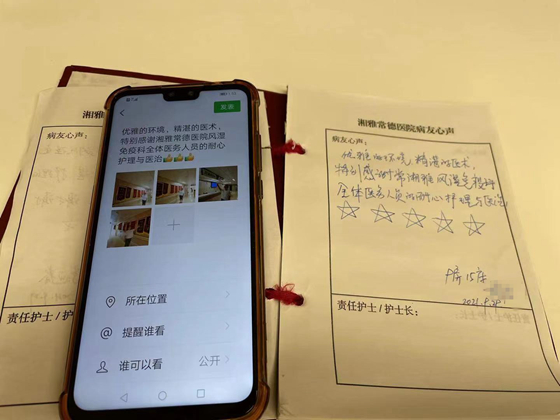 湘雅
病友心声：
责任护士 / 护
发表
优雅的环境，精湛的医术，
特别感谢湘雅常德医院风湿
免疫科全体医务人员的耐心
护理与医治👍👍👍
所在位置
@ 提醒谁看
谁可以看 公开
湘雅常德医院病友心声
病友心声：
优雅的环境，精湛的医术，
特别感谢常湘雅风湿免疫科
全体医务人员的耐心护理与医治
☆☆☆☆☆
15床
2021.9.28
责任护士 / 护士长：